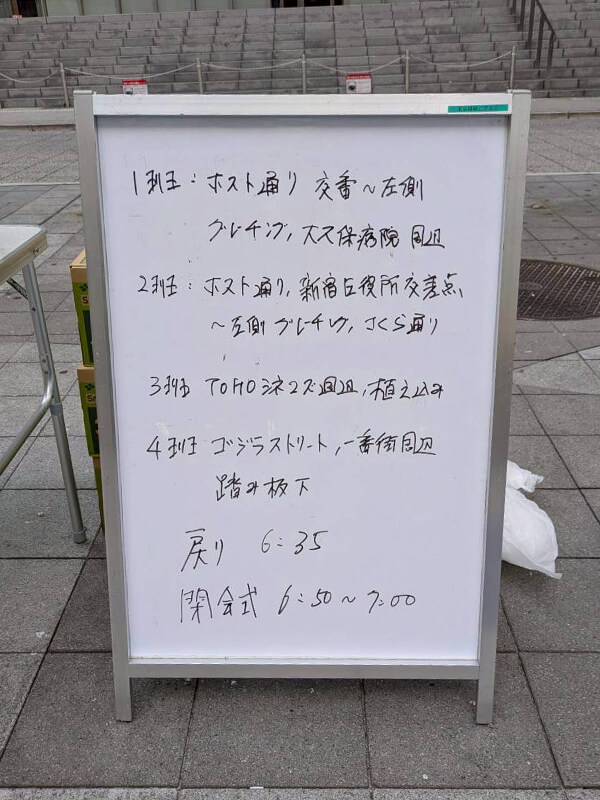 1班：ホスト通り 交番～左側
グレーチング, 大久保病院 周辺
2班：ホスト通り, 新宿区役所交差点
～左側 グレーチング, さくら通り
3班 TOHOシネマズ周辺, 植え込み
4班 ゴジラストリート, 一番街周辺
踏み板下
戻り 6:35
閉会式 6:50～7:00